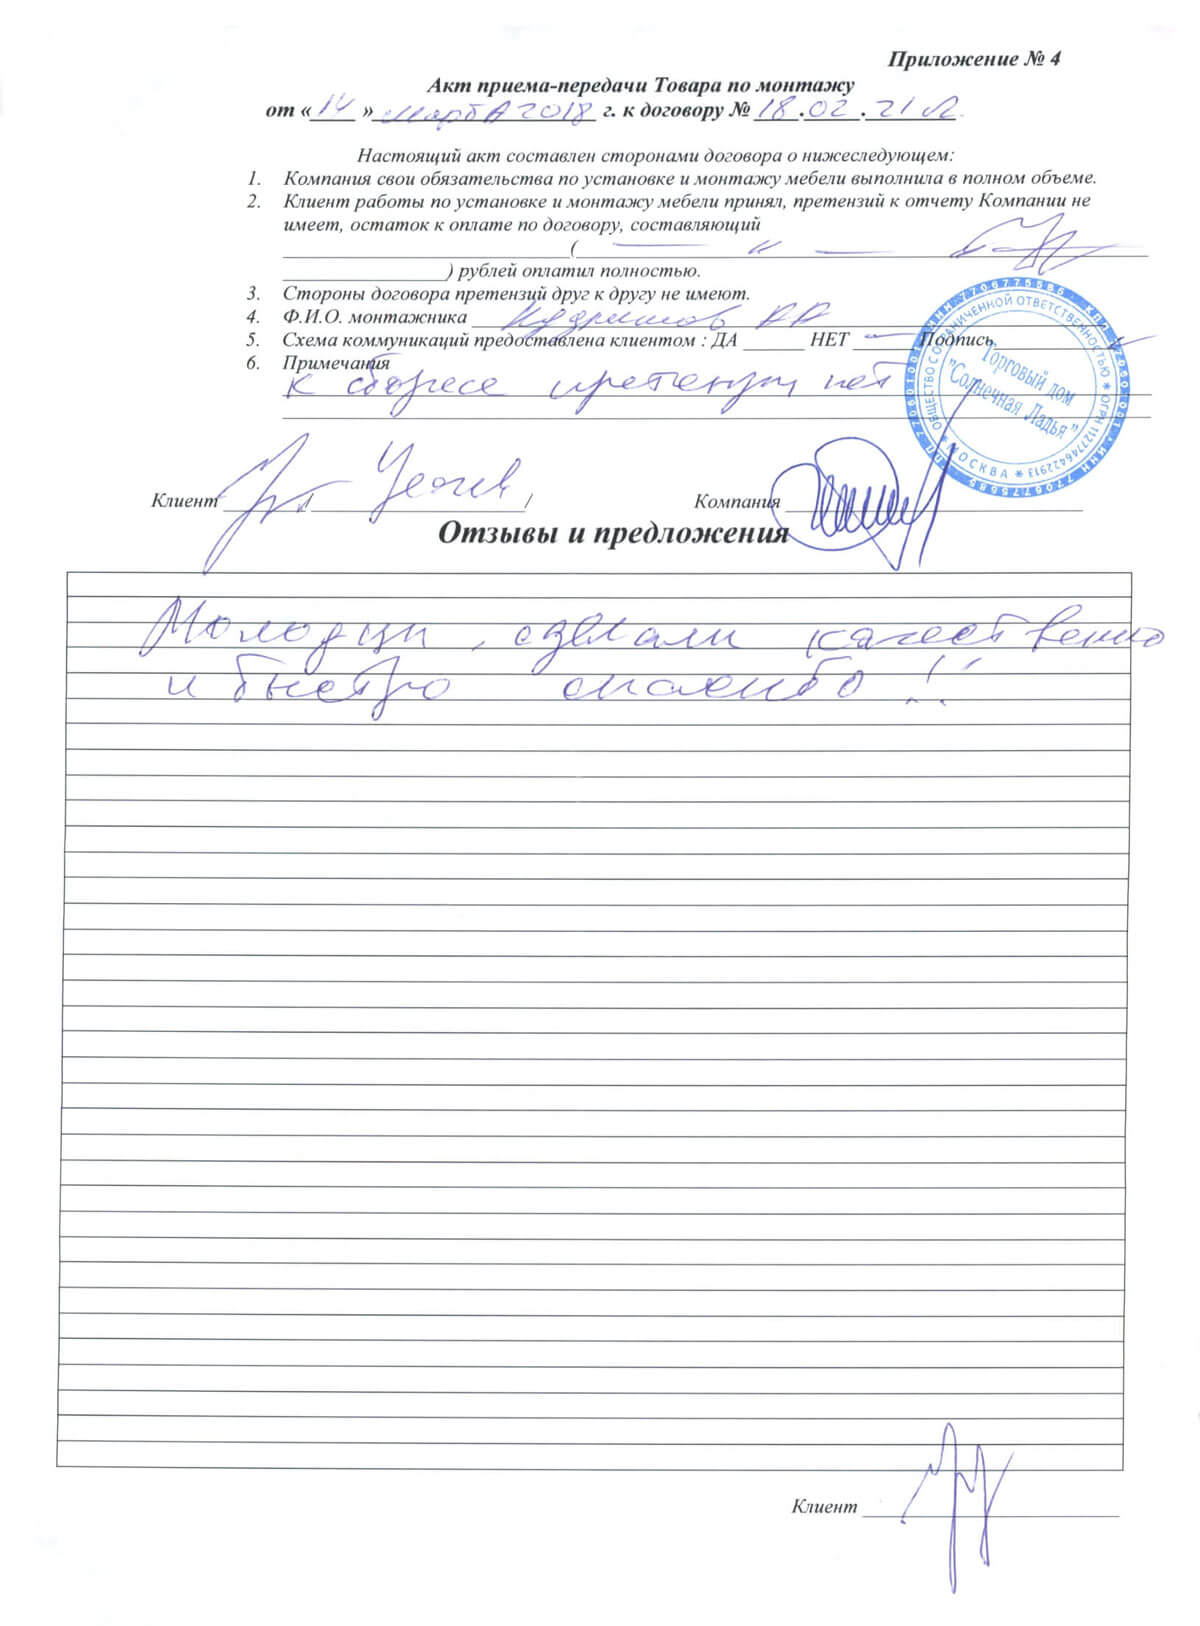 Приложение № 4
Акт приема-передачи Товара по монтажу
от « 14 » марта 2018 г. к договору № 18.02.21 Л.
Настоящий акт составлен сторонами договора о нижеследующем:
1. Компания свои обязательства по установке и монтажу мебели выполнила в полном объеме.
2. Клиент работы по установке и монтажу мебели принял, претензий к отчету Компании не
имеет, остаток к оплате по договору, составляющий
( — " —
) рублей оплатил полностью.
3. Стороны договора претензий друг к другу не имеют.
4. Ф.И.О. монтажника
5. Схема коммуникаций предоставлена клиентом : ДА НЕТ — Подпись
6. Примечания
к сборке претензий нет
ОБЩЕСТВО С ОГРАНИЧЕННОЙ ОТВЕТСТВЕННОСТЬЮ * ОГРН 1127746422913 * МОСКВА *
ИНН 7706775585 * КПП 770601001
Торговый дом
"Солнечная Ладья"
Клиент / /
Компания
Отзывы и предложения
Молодцы, сделали качественно
и быстро спасибо!!
Клиент